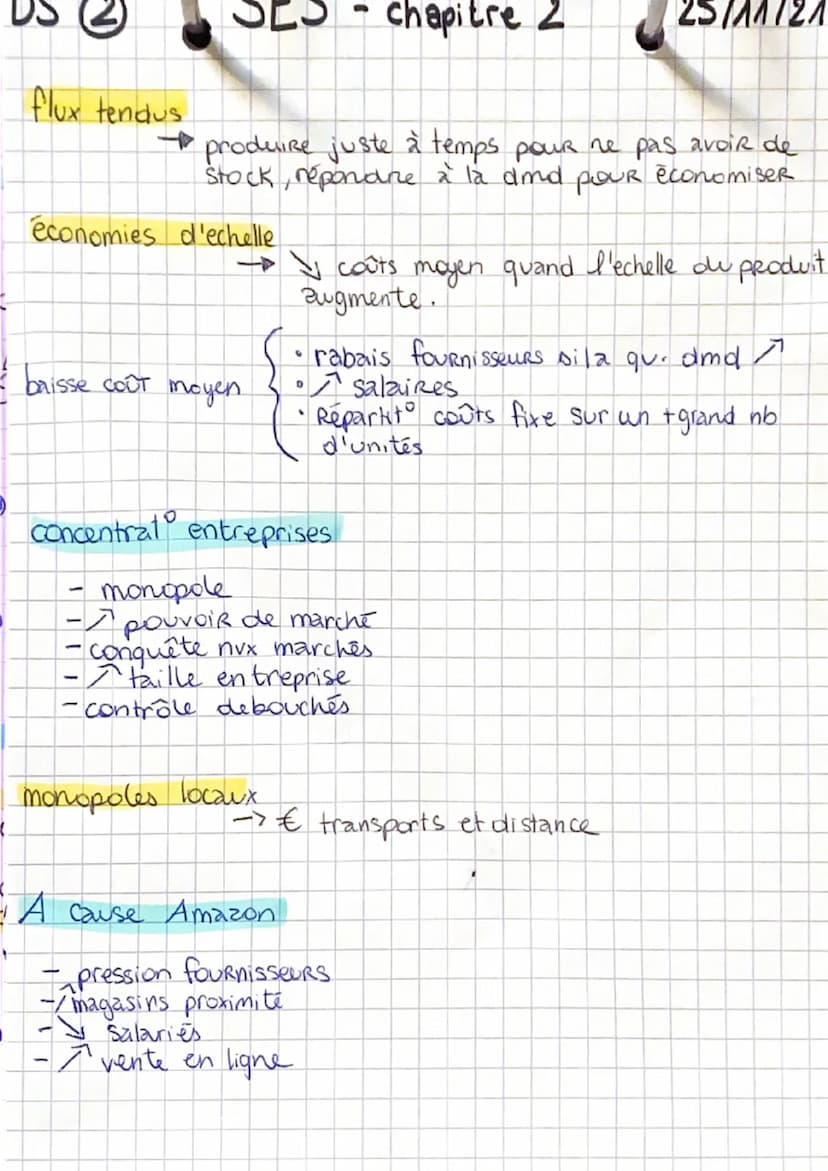 DS ② SES - chapitre 2 25/11/21
flux tendus
→ produire juste à temps pour ne pas avoir de
stock, répondre à la dmd pour économiser
économies d'echelle
→ ↘ coûts moyen quand l'echelle du produit
augmente.
baisse coût moyen
• rabais fournisseurs si la qu. dmd ↗
• ↗ salaires
• Répartit° coûts fixe sur un + grand nb
d'unités
concentrat° entreprises
- monopole
- ↗ pouvoir de marché
- conquête nvx marchés
- ↗ taille entreprise
- contrôle debouchés
monopoles locaux
→ € transports et distance
A cause Amazon
- pression fournisseurs
- ↗ magasins proximité
- ↘ salariés
- ↗ vente en ligne